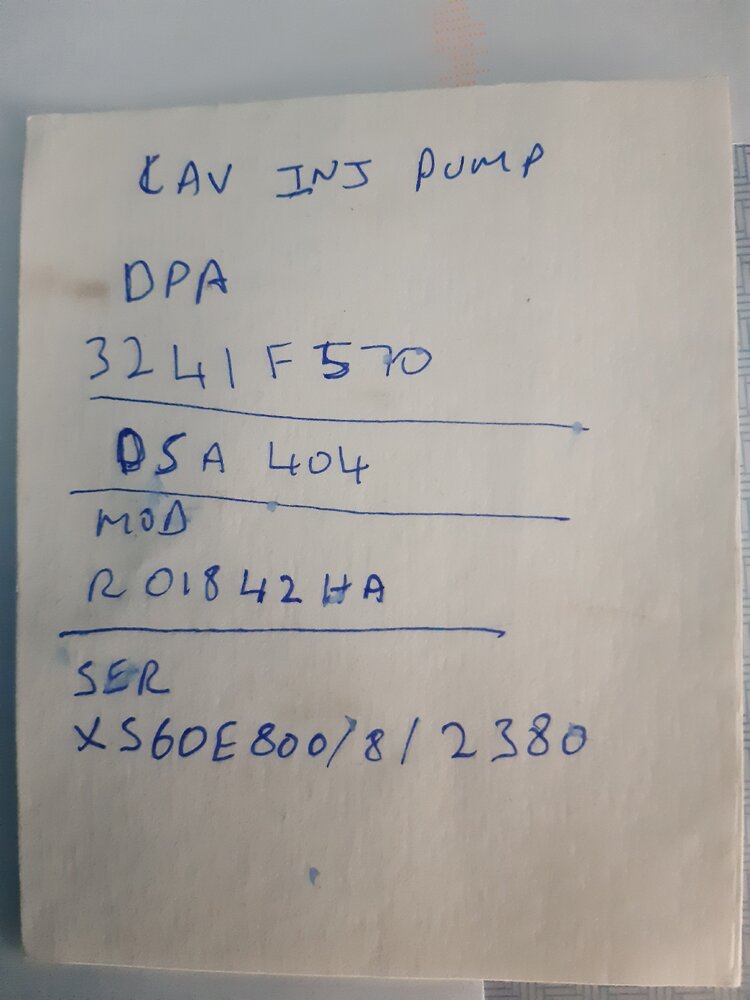 CAV INJ PUMP
DPA
3241F570
DSA 404
MOD
R01842HA
SER
XS60E800/8/2380